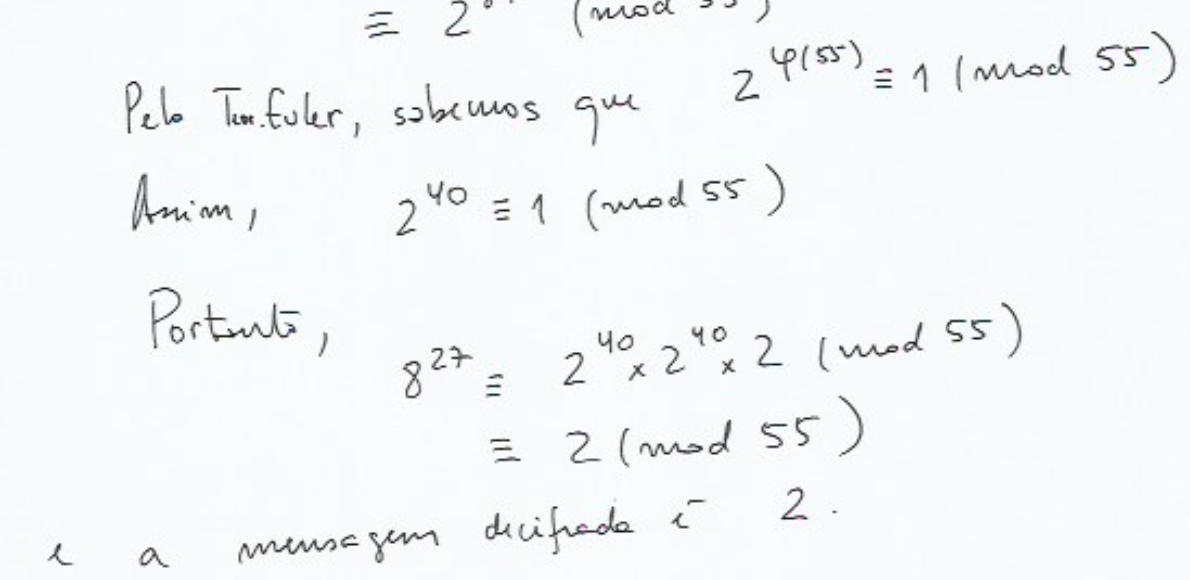 ≡ 2 (mod 55)
Pelo Teo. Euler, sabemos que 2^φ(55) ≡ 1 (mod 55)
Assim, 2^40 ≡ 1 (mod 55)
Portanto,
8^27 ≡ 2^40 × 2^40 × 2 (mod 55)
≡ 2 (mod 55)
e a mensagem decifrada é 2.